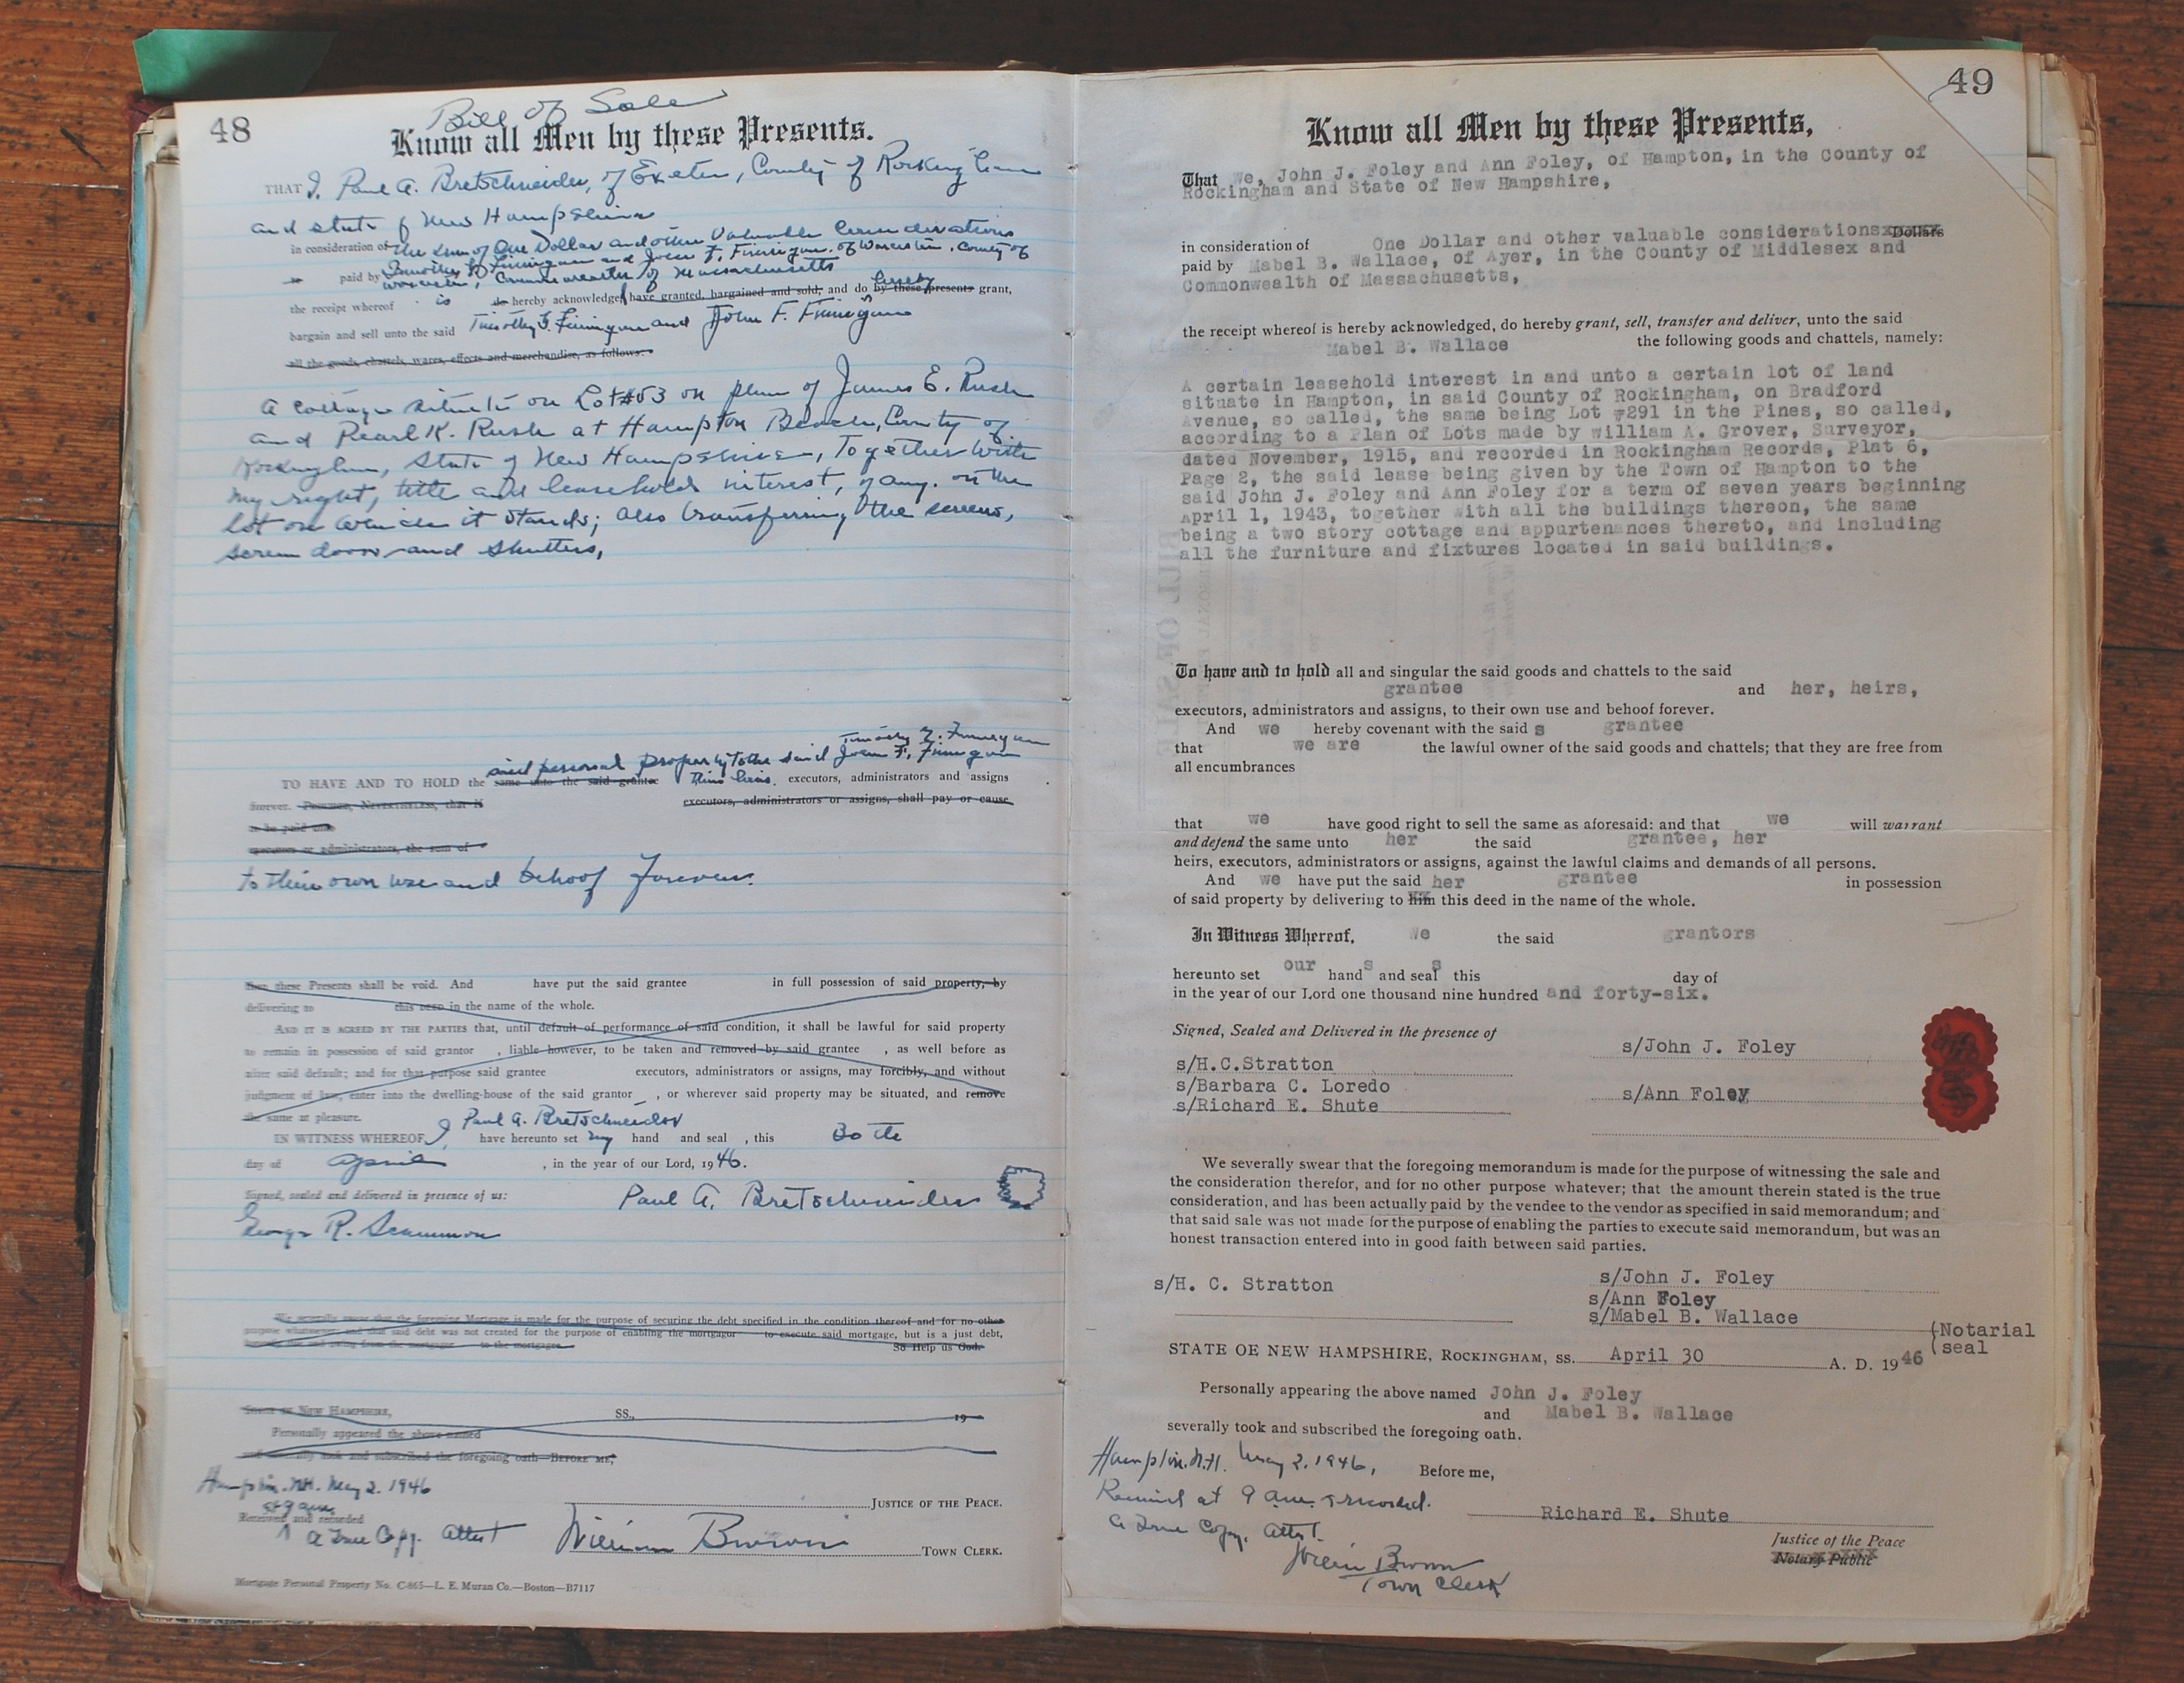 48
Bill of Sale
Know all Men by these Presents.
THAT I, Paul A. Bretschneider, of Exeter, County of Rockingham
and state of New Hampshire
in consideration of the sum of One Dollar and other Valuable Considerations
paid by Timothy F. Finnigan and John F. Finnigan of Worcester, County of
Worcester, Commonwealth of Massachusetts
the receipt whereof is do hereby acknowledged have granted, bargained and sold, and do hereby by these presents grant,
bargain and sell unto the said Timothy F. Finnigan and John F. Finnigan
all the goods, chattels, wares, effects and merchandise, as follows:
A cottage situate on Lot #53 on plan of James E. Rush
and Pearl K. Rush at Hampton Beach, County of
Rockingham, State of New Hampshire, Together With
my right, title and leasehold interest, if any. on the
lot on which it stands; also transferring the screens,
screen doors and shutters,
Timothy F. Finnigan
said personal property to the said John F. Finnigan
TO HAVE AND TO HOLD the same unto the said grantee their heirs, executors, administrators and assigns
forever. PROVIDED, NEVERTHELESS, that if executors, administrators or assigns, shall pay or cause
to be paid unto
executors or administrators, the sum of
to their own use and behoof forever.
then these Presents shall be void. And have put the said grantee in full possession of said property, by
delivering to this DEED in the name of the whole.
AND IT IS AGREED BY THE PARTIES that, until default of performance of said condition, it shall be lawful for said property
to remain in possession of said grantor , liable however, to be taken and removed by said grantee , as well before as
after said default; and for that purpose said grantee executors, administrators or assigns, may forcibly, and without
judgment of law, enter into the dwelling-house of the said grantor , or wherever said property may be situated, and remove
the same at pleasure.
Paul A. Bretschneider
IN WITNESS WHEREOF, I have hereunto set my hand and seal , this 30 th
day of April , in the year of our Lord, 1946.
Signed, sealed and delivered in presence of us: Paul A. Bretschneider
George R. Scammon
We severally swear that the foregoing Mortgage is made for the purpose of securing the debt specified in the condition thereof and for no other
purpose whatsoever, and that said debt was not created for the purpose of enabling the mortgagor to execute said mortgage, but is a just debt,
honestly due and owing from the mortgagor to the mortgagee.
So Help us God.
STATE OF NEW HAMPSHIRE, SS., 19
Personally appeared the above named
and severally took and subscribed the foregoing oath—BEFORE ME,
Hampton. NH. May 2. 1946
at 9 am.
JUSTICE OF THE PEACE.
Received and recorded
A True Copy. Attest William Brown
TOWN CLERK.
Mortgage Personal Property No. C-865—L. E. Muran Co.—Boston—B7117
49
Know all Men by these Presents,
That we, John J. Foley and Ann Foley, of Hampton, in the County of
Rockingham and State of New Hampshire,
in consideration of One Dollar and other valuable considerationsxxxxx Dollars
paid by Mabel B. Wallace, of Ayer, in the County of Middlesex and
Commonwealth of Massachusetts,
the receipt whereof is hereby acknowledged, do hereby grant, sell, transfer and deliver, unto the said
Mabel B. Wallace the following goods and chattels, namely:
A certain leasehold interest in and unto a certain lot of land
situate in Hampton, in said County of Rockingham, on Bradford
Avenue, so called, the same being Lot #291 in the Pines, so called,
according to a Plan of Lots made by William A. Grover, Surveyor,
dated November, 1915, and recorded in Rockingham Records, Plat 6,
Page 2, the said lease being given by the Town of Hampton to the
said John J. Foley and Ann Foley for a term of seven years beginning
April 1, 1943, together with all the buildings thereon, the same
being a two story cottage and appurtenances thereto, and including
all the furniture and fixtures located in said buildings.
To have and to hold all and singular the said goods and chattels to the said
grantee and her, heirs,
executors, administrators and assigns, to their own use and behoof forever.
And we hereby covenant with the said s grantee
that we are the lawful owner of the said goods and chattels; that they are free from
all encumbrances
that we have good right to sell the same as aforesaid: and that we will warrant
and defend the same unto her the said grantee, her
heirs, executors, administrators or assigns, against the lawful claims and demands of all persons.
And we have put the said her grantee in possession
of said property by delivering to him this deed in the name of the whole.
In Witness Whereof, We the said grantors
hereunto set our hands and seals this day of
in the year of our Lord one thousand nine hundred and forty-six.
Signed, Sealed and Delivered in the presence of
s/John J. Foley
s/H.C.Stratton
s/Barbara C. Loredo
s/Ann Foley
s/Richard E. Shute
We severally swear that the foregoing memorandum is made for the purpose of witnessing the sale and
the consideration therefor, and for no other purpose whatever; that the amount therein stated is the true
consideration, and has been actually paid by the vendee to the vendor as specified in said memorandum; and
that said sale was not made for the purpose of enabling the parties to execute said memorandum, but was an
honest transaction entered into in good faith between said parties.
s/H. C. Stratton s/John J. Foley
s/Ann Foley
s/Mabel B. Wallace
Notarial
seal
STATE OE NEW HAMPSHIRE, ROCKINGHAM, SS. April 30 A. D. 1946
Personally appearing the above named John J. Foley
and Mabel B. Wallace
severally took and subscribed the foregoing oath.
Hampton. N.H. May 2. 1946, Before me,
Received at 9 am. & recorded.
Richard E. Shute
A True Copy, Attest.
Justice of the Peace
Notary Public
William Brown
Town Clerk